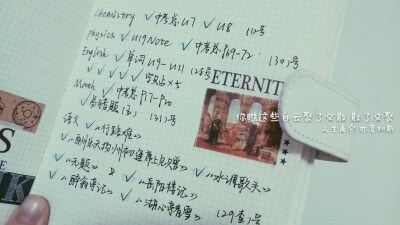 Chemistry ✓中考总U7 ✓U8 11号
physics ✓U19 Note ✓中考总P69-72 130号
English ✓单词U9-U11 128号
✓✓✓✓✓完型×5
Math ✓中考总P17-P20
✓易错题 131号
语文 ✓《行路难》
✓《酬乐天扬州初逢席上见赠》
✓《水调歌头》
✓《无题》 ✓《岳阳楼记》
✓《醉翁亭记》 ✓《湖心亭看雪》 129号
ETERNIT
你瞧这些白云聚了又散 散了又聚
人生离合 亦复如斯
S
K